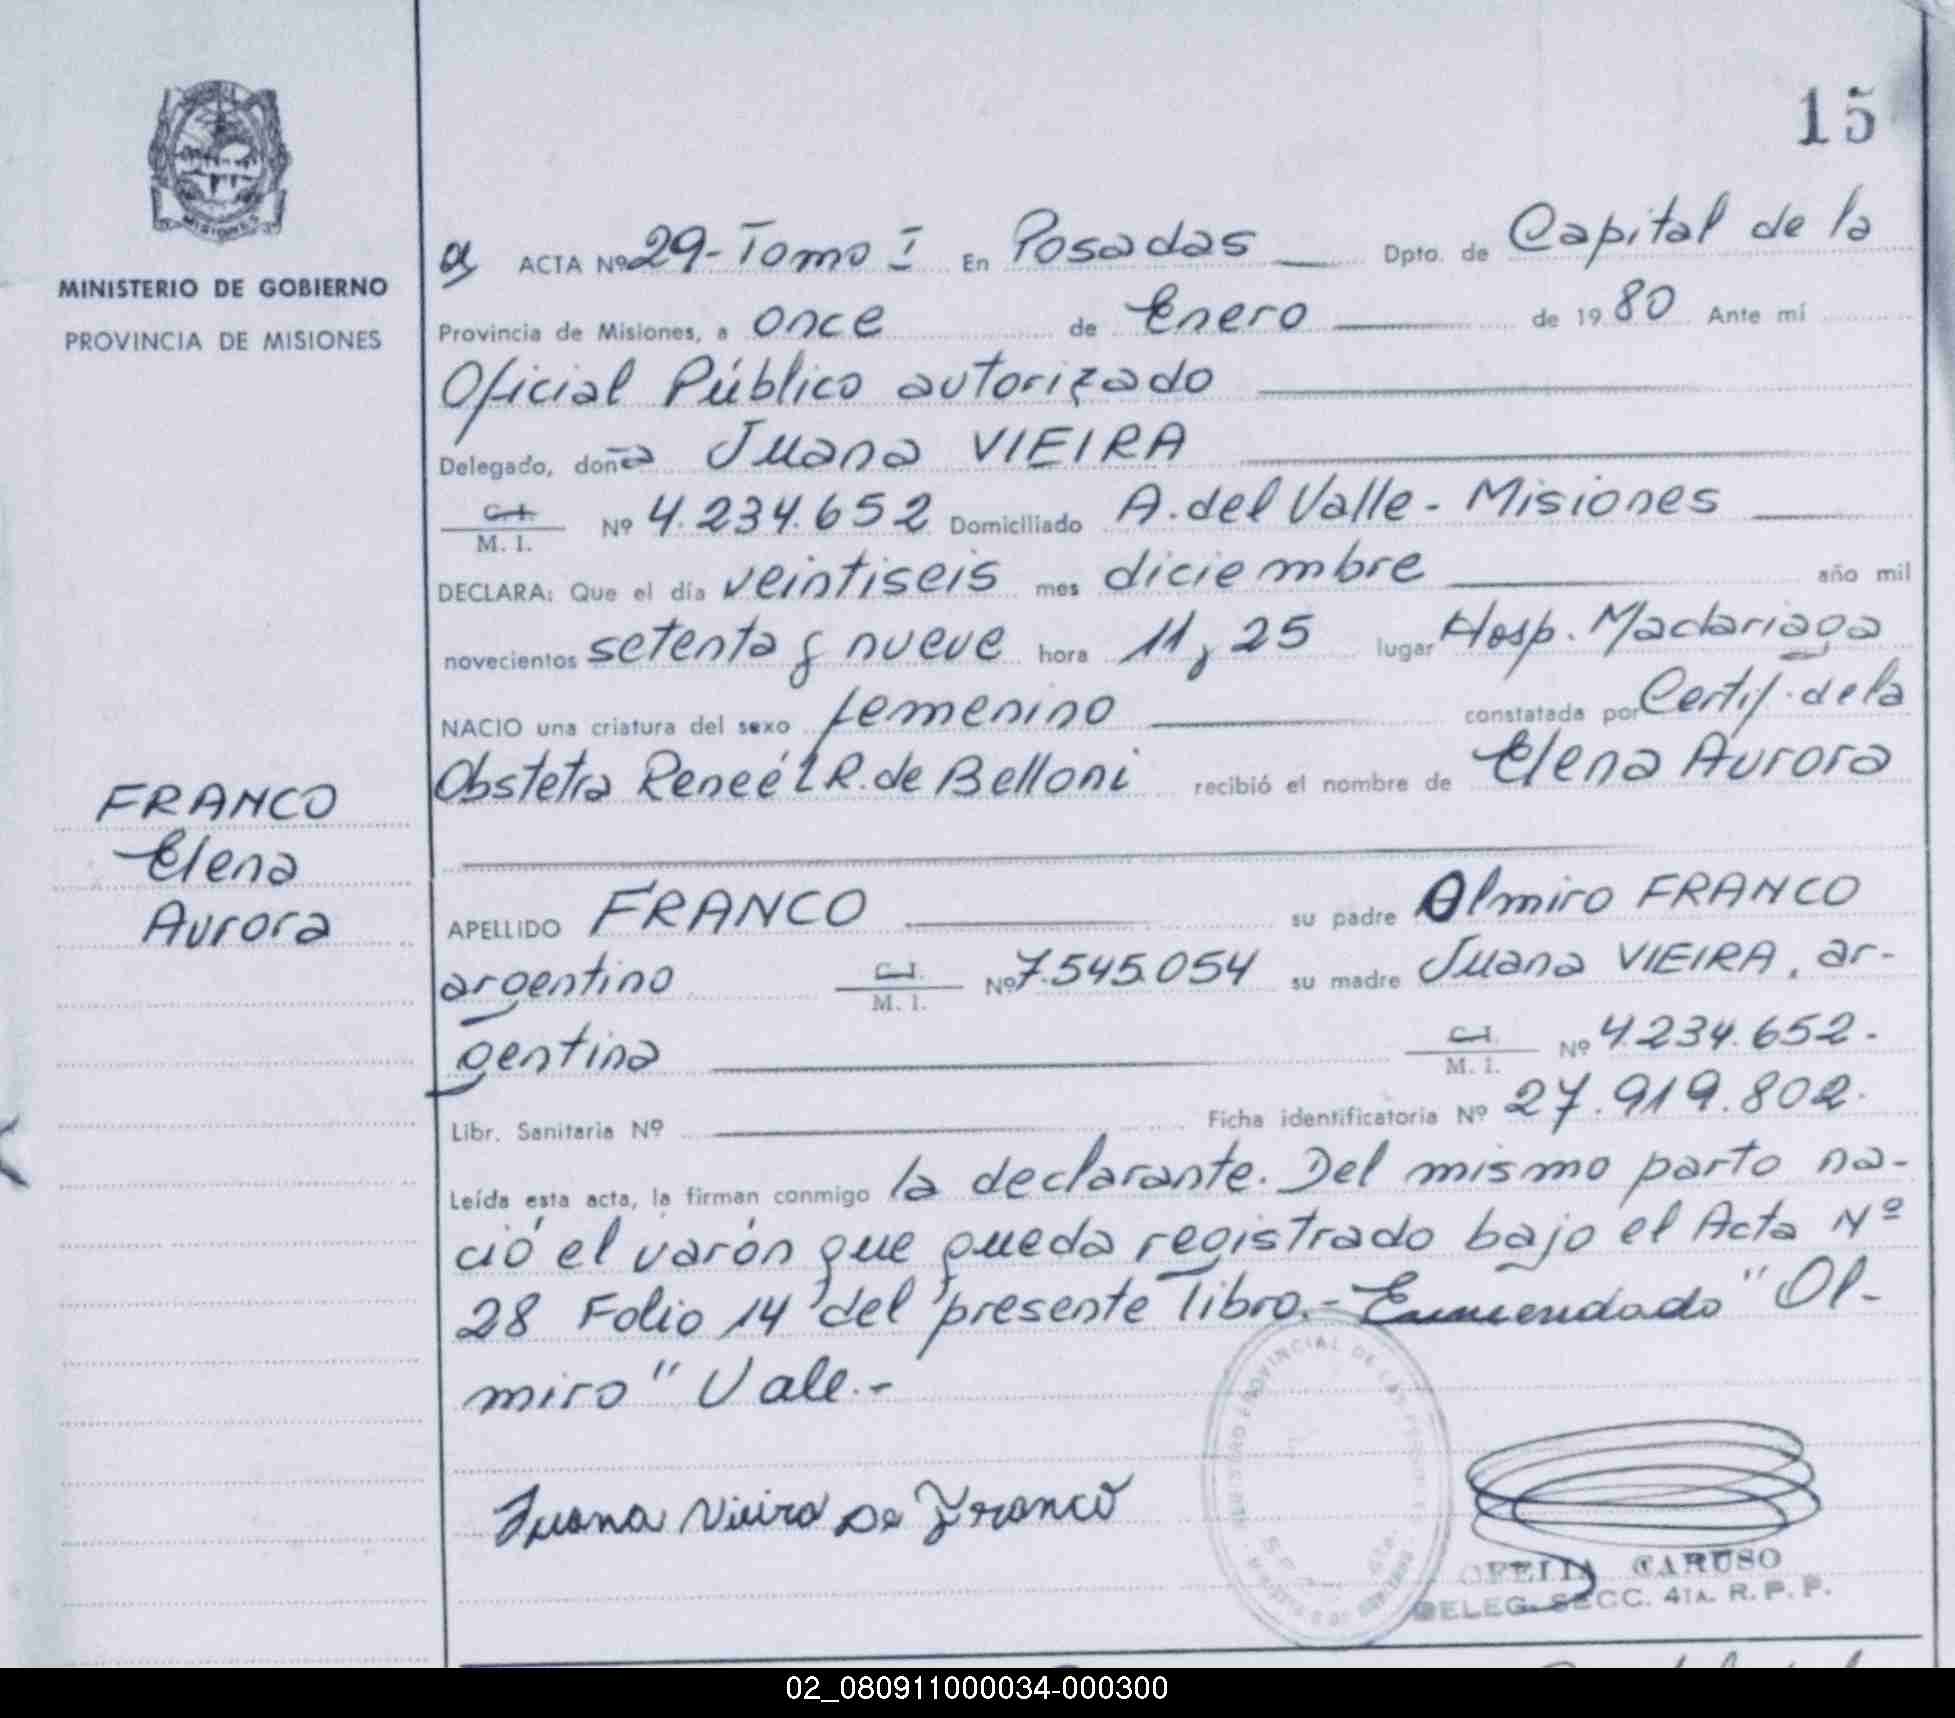 15
MISIONES
MINISTERIO DE GOBIERNO
PROVINCIA DE MISIONES
FRANCO
Elena
Aurora
ACTA Nº 29-Tomo I En Posadas Dpto. de Capital de la
Provincia de Misiones, a once de Enero de 1980 Ante mí
Oficial Público autorizado
Delegado, doña Juana VIEIRA
C.I. M. I. Nº 4.234.652 Domiciliado A. del Valle - Misiones
DECLARA: Que el día veintiseis mes diciembre año mil
novecientos setenta y nueve hora 11,25 lugar Hosp. Madariaga
NACIO una criatura del sexo femenino constatada por Certif. de la
Obstetra Reneé L R. de Belloni recibió el nombre de Elena Aurora
APELLIDO FRANCO su padre Olmiro FRANCO
argentino C.I. M. I. Nº 7.545.054 su madre Juana VIEIRA, ar-
gentina C.I. M. I. Nº 4.234.652.-
Libr. Sanitaria Nº Ficha identificatoria Nº 27.919.802.-
Leída esta acta, la firman conmigo la declarante. Del mismo parto na-
ció el varón que queda registrado bajo el Acta Nº
28 Folio 14 del presente libro.- Enmendado "Ol-
miro" Vale.-
Juana Vieira De Franco
REGISTRO PROVINCIAL DE LAS PERSONAS
OFELIA CARUSO
DELEG. SECC. 4TA. R. P. P.
02_080911000034-000300